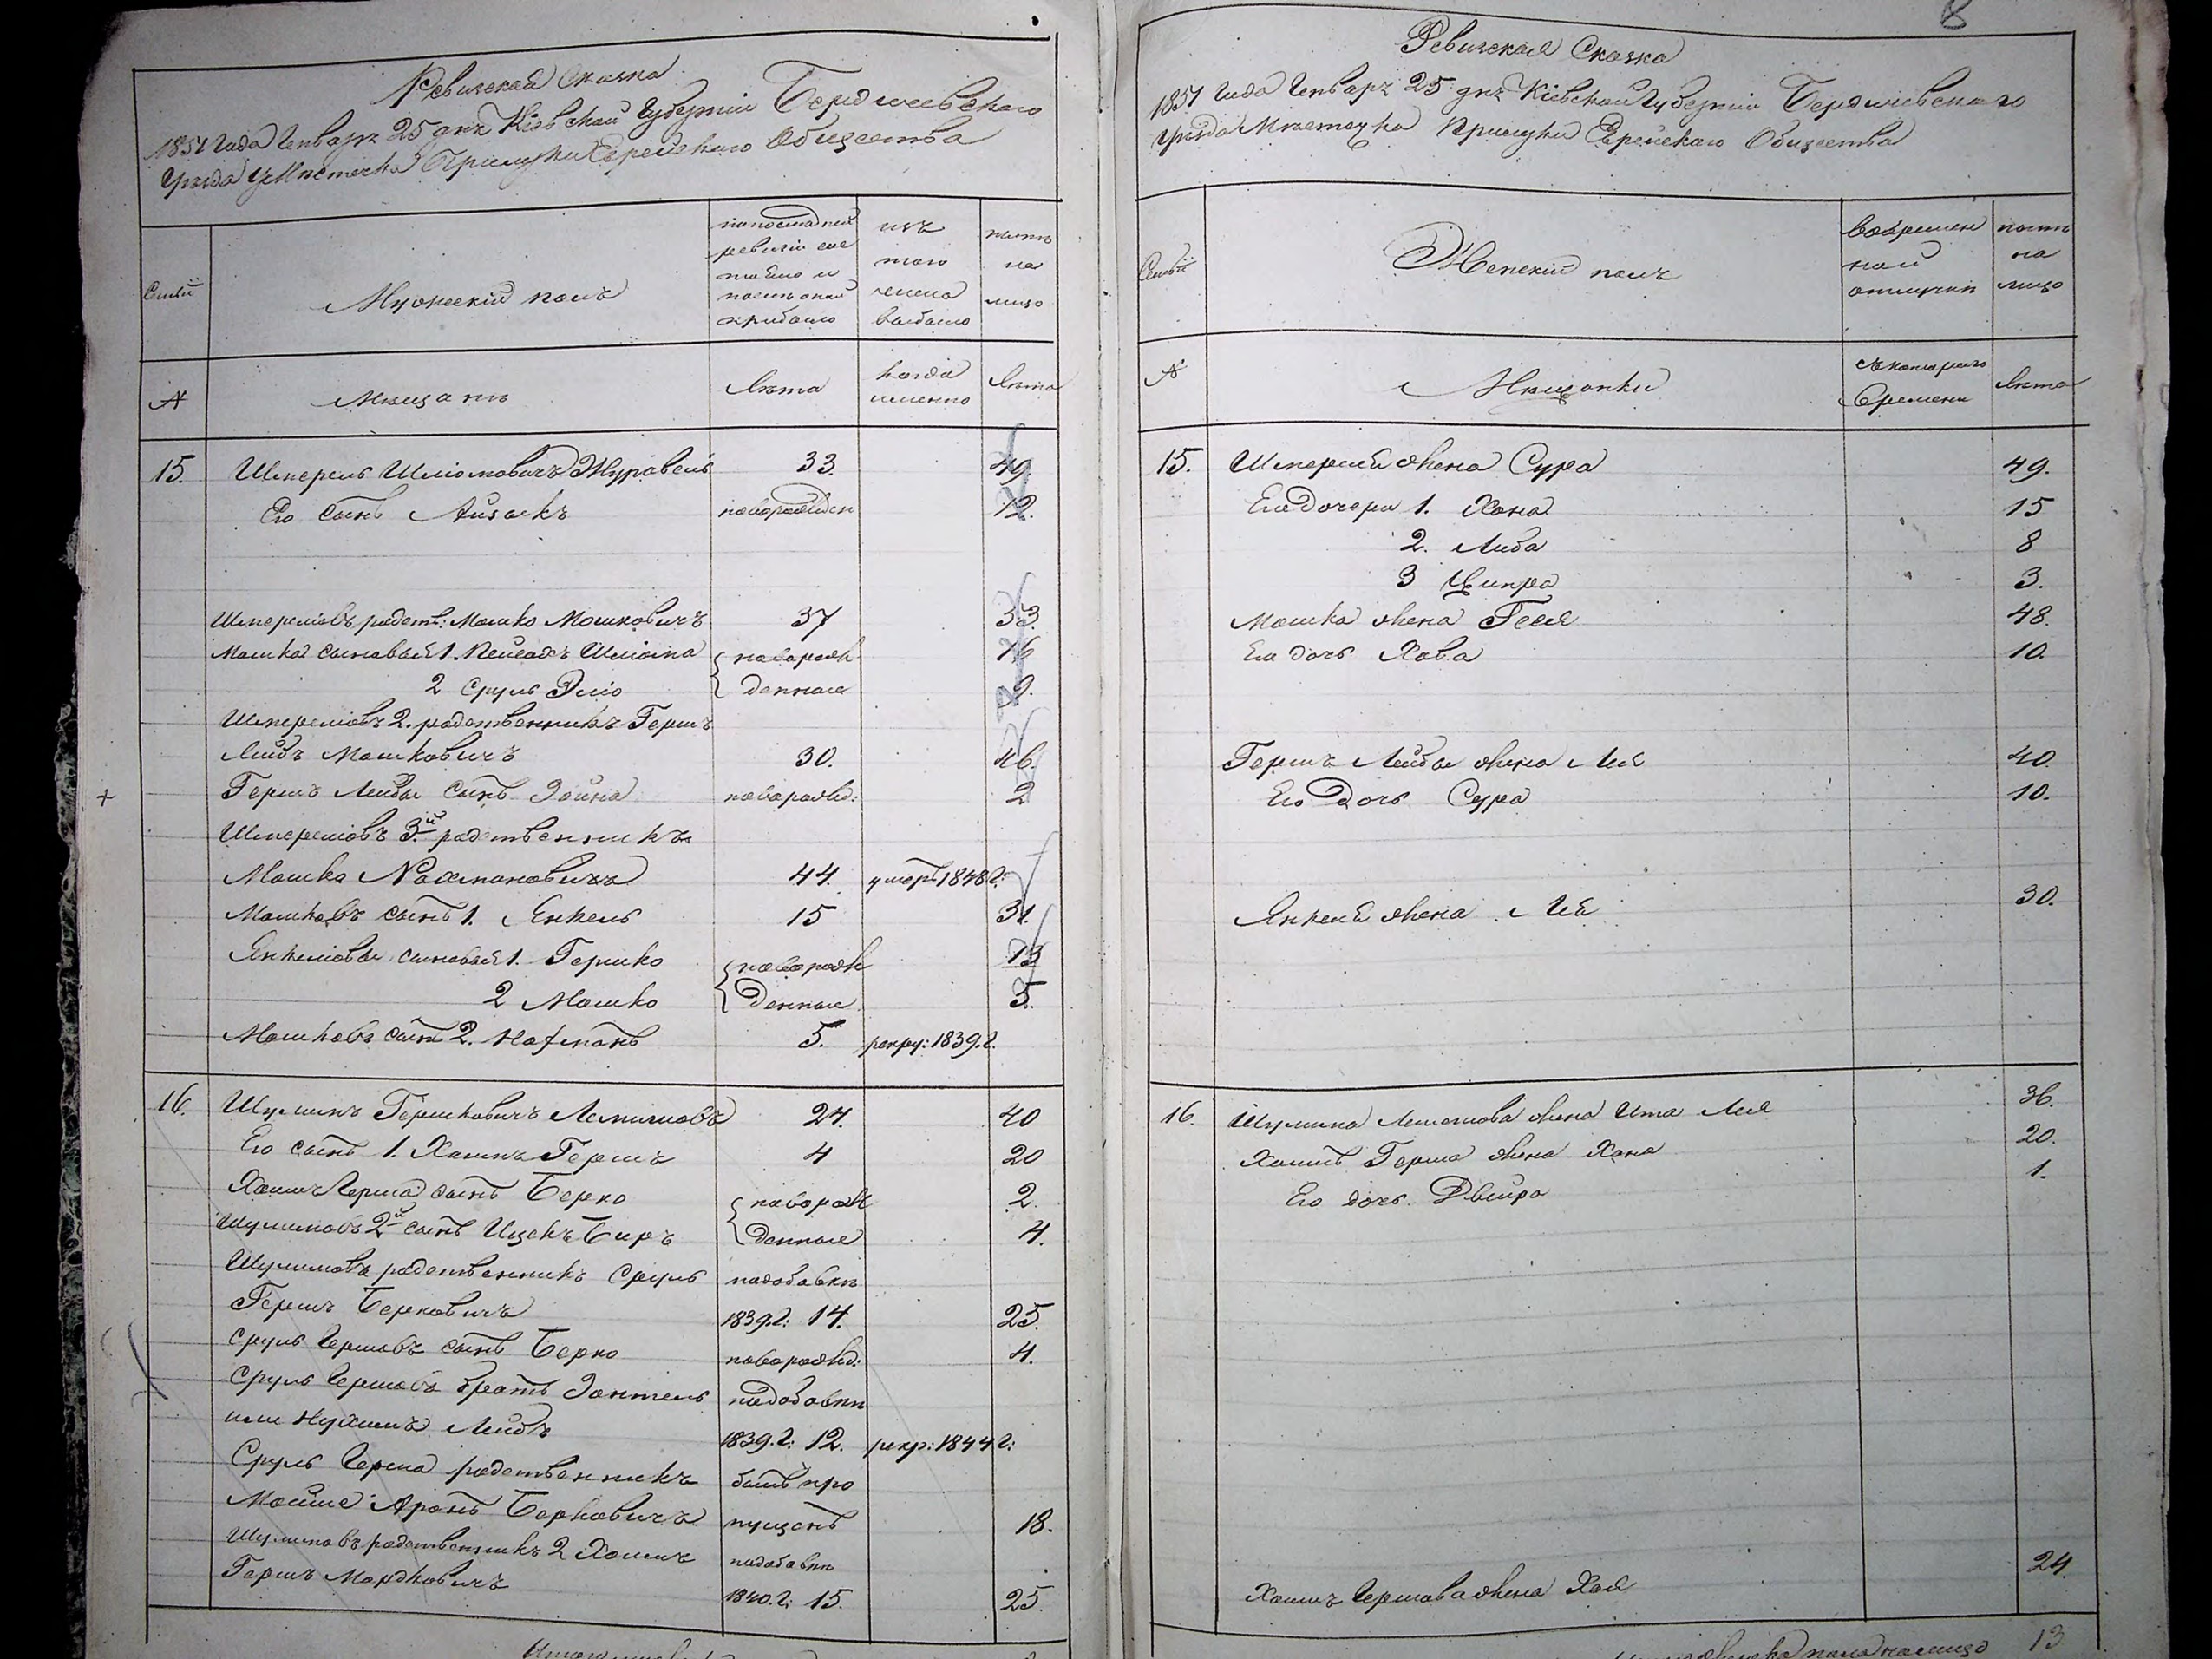 Ревизская Сказка
1851 Года Генваря 25 дня Кіевской Губерніи Бердичевскаго
Уезда Местечка Прилуки Еврейскаго Общества
Семьи
Мужескій полъ
по последней
ревизіи сос
тояло и
после оной
прибыло
изъ
того
числа
выбыло
ныне
на
лицо
№
Мещане
Лета
когда
именно
Лета
15. Шмерель Шліомовичъ Журавель 33. 49.
Его сынъ Айзикъ новорожден 12.
Шмерелювъ родств: Мошко Мошковичъ 37 53.
Мошка сыновья 1. Пейсахъ Шліома новорож 16
2 Сруль Эліо денные 9.
Шмерелювъ 2. родственникъ Гершъ
Лейбъ Мошковичъ 30. 46.
Гершъ Лейбы сынъ Зейна новорожд: 2
Шмерелювъ 3й родственникъ
Мошко Нахмановичъ 44. умеръ 1848 г:
Мошковъ сынъ 1. Янкель 15 31.
Янкелювы сыновья 1. Гершко новорож 13
2 Мошко денные 5.
Мошковъ сынъ 2. Нахманъ 5. рекру: 1839. г.
16. Шулимъ Гершковичъ 24. 40
Его сынъ 1. Хаимъ Гершъ 4 20
Хаимъ Герша сынъ Берко новорож 2.
Шулимовъ 2й сынъ Ицекъ Беръ денные 4.
Шулимовъ родственникъ Сруль подобавки
Гершъ Берковичъ 1839. г: 14. 25.
Сруль Гершовъ сынъ Берко новорожд: 4.
Сруль Гершовъ братъ подобавки
или Нухимъ Лейбъ 1839. г: 12. рекр: 1844 г:
Сруль Герша родственникъ былъ про
Мойше Аронъ Берковичъ пущенъ 18.
Шулимовъ родственникъ 2 Хаимъ подобавки
Гершъ Мордковичъ 1840. г: 15. 25.
8
Ревизская Сказка
1851 Года Генваря 25 дня Кіевской Губерніи Бердичевскаго
Уезда Местечка Прилуки Еврейскаго Общества
Семьи
Женскій полъ
Во времен
ной
отлучки
ныне
на
лицо
№
Мещанки
съ котораго
Времени
Лета
15. Шмереля жена Сура 49.
Его дочери 1. Хана 15
2. Либа 8
3 Ципра 3.
Мошка жена Геся 48.
Его дочь Хава 10.
Гершъ Лейбы жена Лея 40.
Его Дочь Сура 10.
Янкеля жена Лея 30.
16. Шулима жена Ита Лея 36.
Хаимъ Герша жена Хана 20.
Его дочь Двейра 1.
Хаимъ Гершова жена Хая 24.
женска пола налицо 13